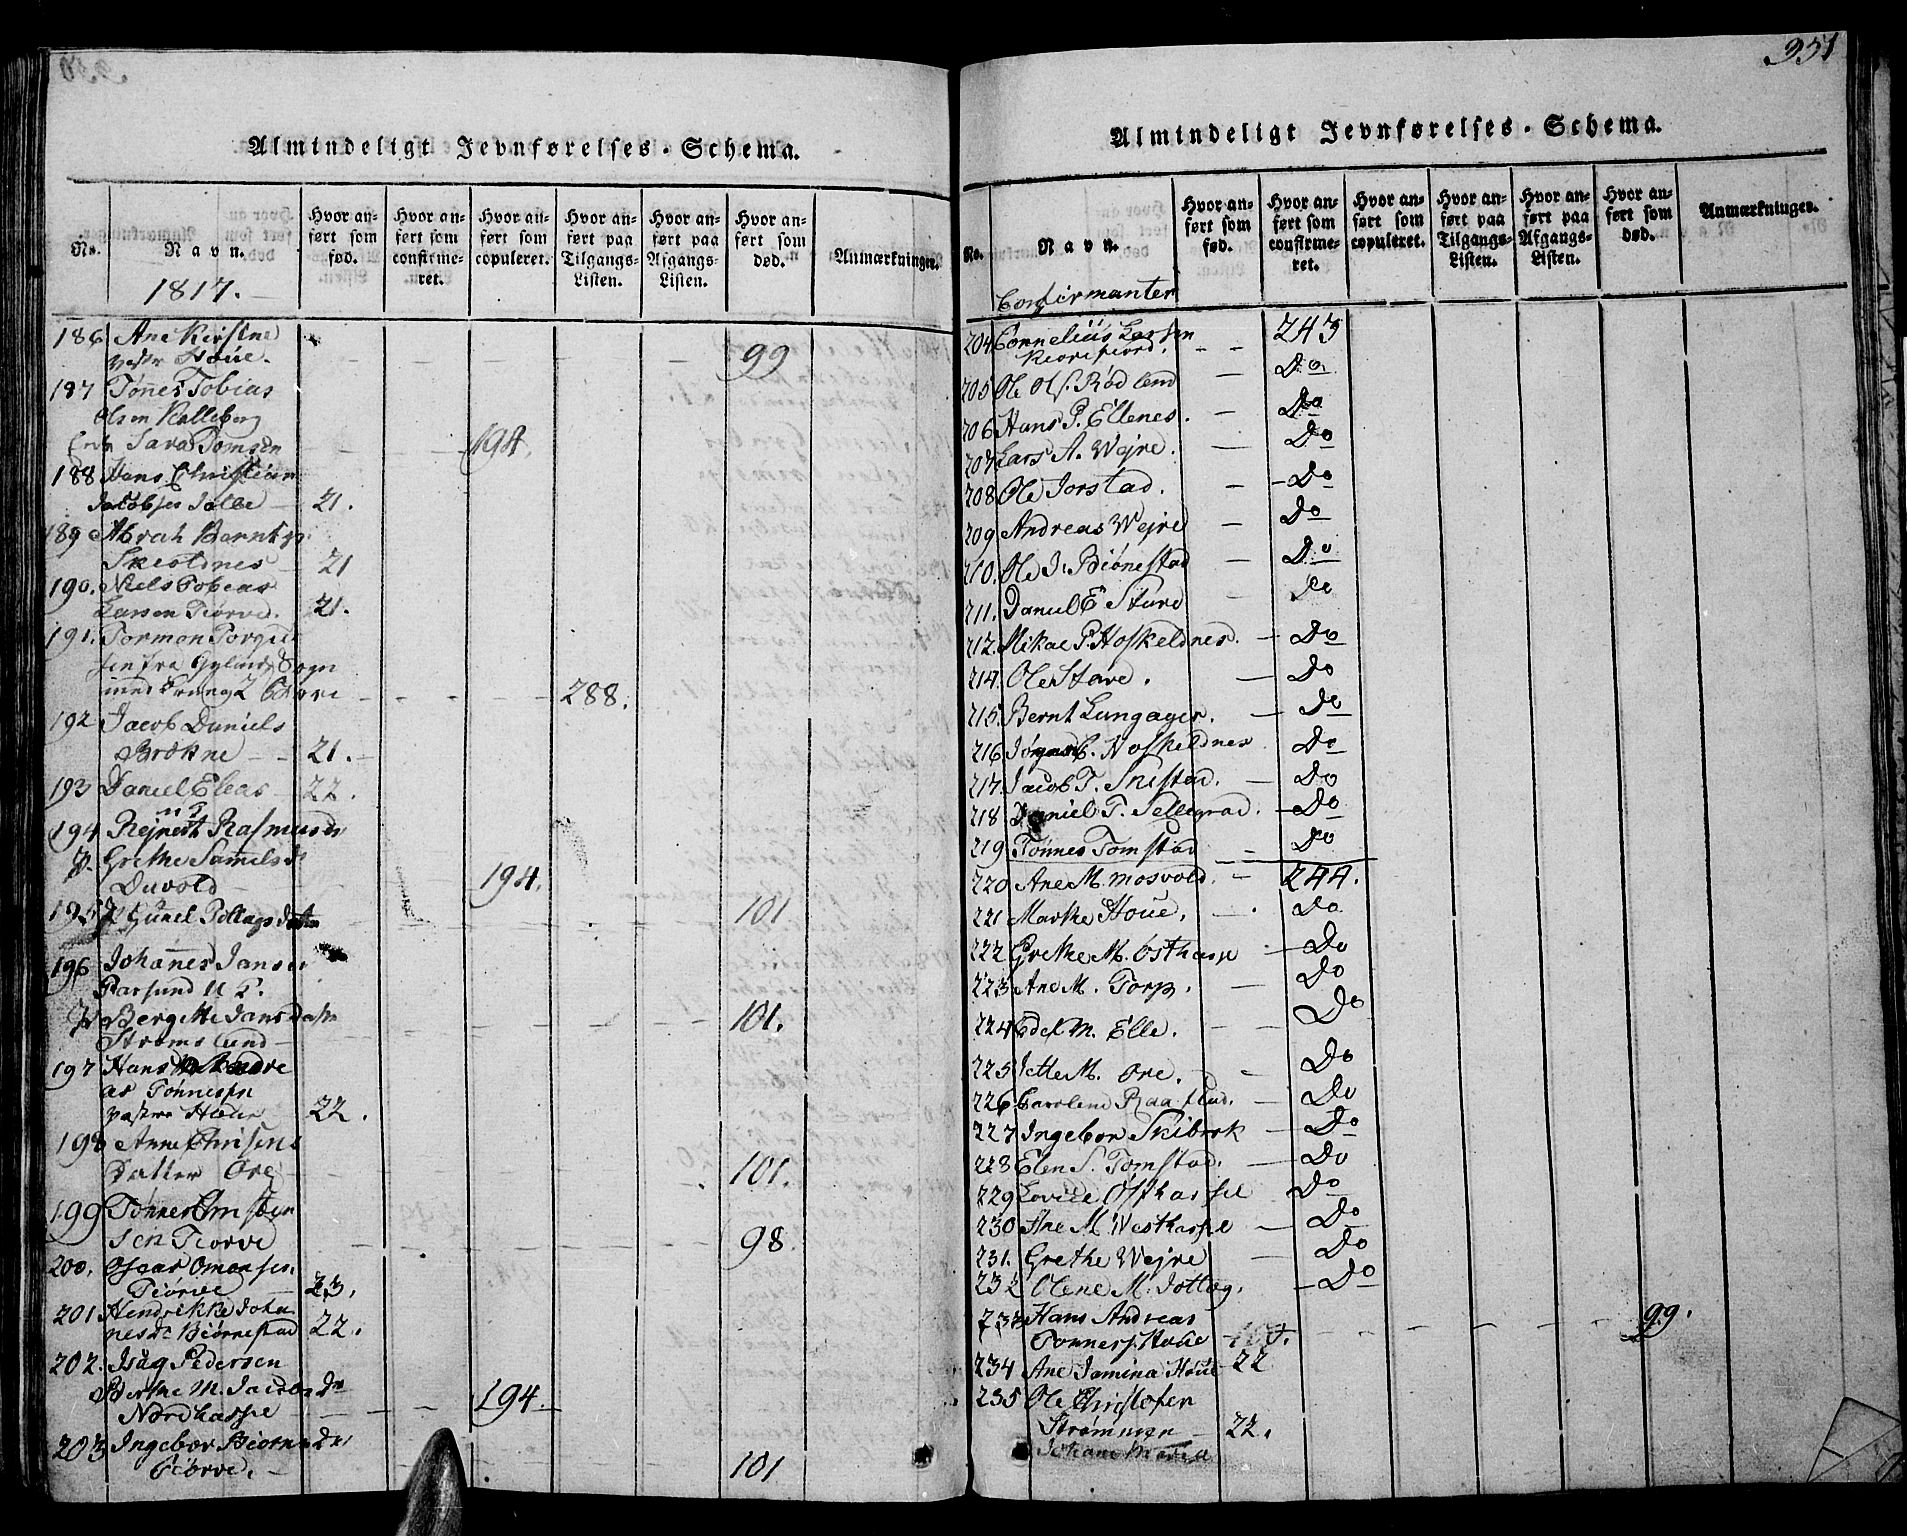 Almindeligt Jevnførelses-Schema.
No. Navn. Hvor anført som fød. Hvor anført som confirmeret. Hvor anført som copuleret. Hvor anført paa Tilgangs-Listen. Hvor anført paa Afgangs-Listen. Hvor anført som død. Anmærkninger.
1817.
186 Ane Kirstne
Houe. 99
187 Tønnes Tobias
Olsen Kalleberg
Sara Tomsdn 194.
188 Hans Christian
Jacobsen 21.
189 Abrah Berntsn
Skeoldnes 21
190. Niels Tobias
Larsen Tiørve. 21.
191. Tormon
fra Sogn
288.
192 Jacob Daniels
Brækne 21.
193 Daniel Eleas 22.
194 Rejnert Rasmusen
Grethe Samelsd
Duvold 194.
195 Gunel 101
196 Johannes Jansen
Farsund
Bergitte Jansdatr
Strømslund 101.
197 Hans Andre
as Tønnesen
Houe 22.
198 Anne Chrisens
Datter Ore 101.
199 Tønnes Omsten
sen Tiorve 98.
200. Osear Omensen
Tiørve 23.
201 Hendrekke Joha
nesdr Biørnestad 22.
202. Isaq Pedersen
Berthe M. Jacobs dr
Nordhassel 194.
203 Ingebor Biorns dr
Tiørve. 101
351
Almindeligt Jevnførelses-Schema.
No. Navn. Hvor anført som fød. Hvor anført som confirmeret. Hvor anført som copuleret. Hvor anført paa Tilgangs-Listen. Hvor anført paa Afgangs-Listen. Hvor anført som død. Anmærkninger.
Confirmanter
204 Cornelius Larsen 243
205 Ole Ols. Rødland Do
206 Hans P. Ellenes. Do
207 Lars A. Wejre. Do
208 Ole Jorstad. Do
209 Andreas Wejre Do
210. Ole J. Biønestad Do
211. Daniel E Stave Do
212. Mikael P. Hoskeldnes. Do
214. Ole Stave. Do
215. Bernt Lungager. Do
216 C. Hoskeldnes Do
217. Jacob T. Skistad. Do
218 Daniel T. Sellegrad. Do
219 Tønnes Tomstad Do
220 Ane M. mosvold. 244.
221 Marthe Houe. Do
222 Grethe M. Østhassel Do
223 Ane M. Torp. Do
224 Edel M. Elle. Do
225 Jette M. Ore. Do
226 Do
227 Ingebor Skibrok Do
228 Elen S. Tomstad. Do
229 Lovise Østhassel Do
230 Ane M. Westhassel Do
231. Grethe Wejre Do
232 Olene M. Jolleg. Do
233 Hans Andreas
Tonnes. Houe 99.
234 Ane Jamina Houe 22
235 Ole Christofer
Strømmen 22.
Johane Maria